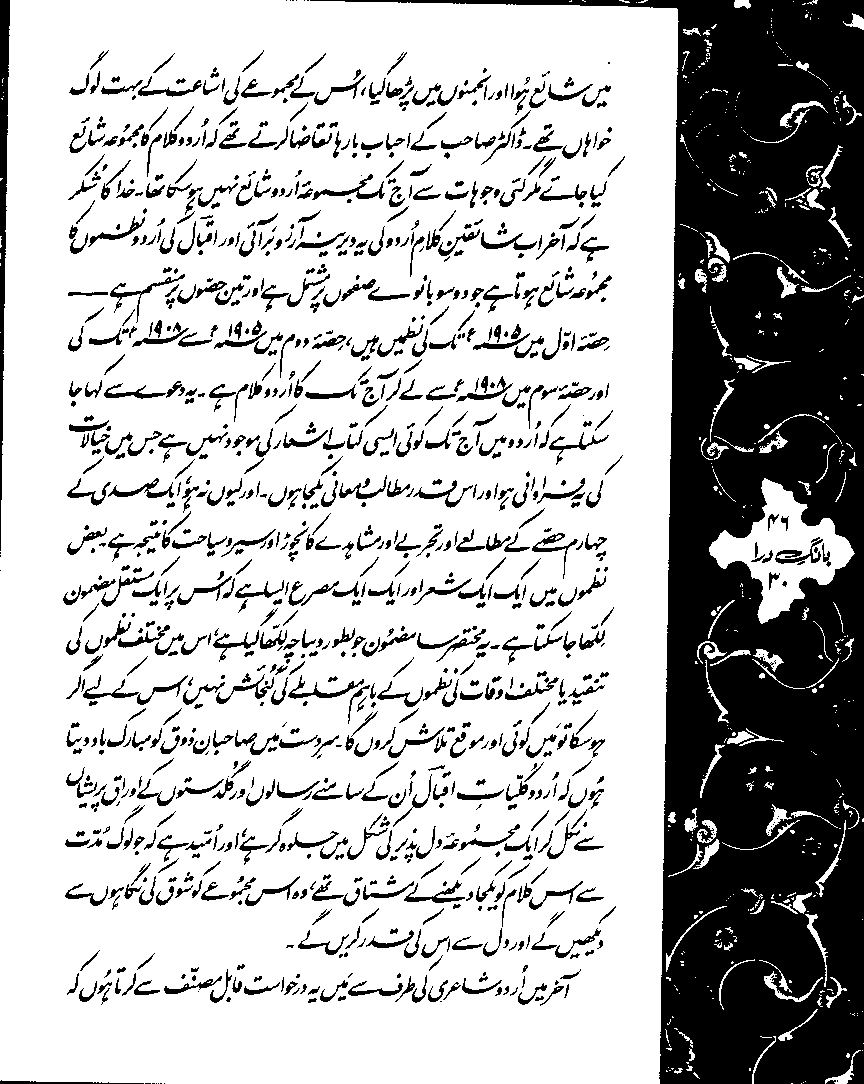 میں شائع ہُوا اور انجمنوں میں پڑھا گیا، اُس کے مجموعے کی اشاعت کے بہت لوگ
خواہاں تھے۔ ڈاکٹر صاحب کے احباب بارہا تقاضا کرتے تھے کہ اُردو کلام کا مجموعہ شائع
کیا جائے مگر کئی وجوہات سے آج تک مجموعۂ اُردو شائع نہیں ہو سکا تھا۔ خدا کا شکر
ہے کہ آخر اب شائقینِ کلامِ اُردو کی یہ دیرینہ آرزو بَر آئی اور اقبالؔ کی اُردو نظموں کا
مجموعہ شائع ہوتا ہے جو دو سو بانوے صفحوں پر مشتمل ہے اور تین حصّوں پر منقسم ہے —
حصّۂ اوّل میں ۱۹۰۵ء تک کی نظمیں ہیں، حصّۂ دوم میں ۱۹۰۵ء سے ۱۹۰۸ء تک کی
اور حصّۂ سوم میں ۱۹۰۸ء سے لے کر آج تک کا اُردو کلام ہے۔ یہ دعوے سے کہا جا
سکتا ہے کہ اُردو میں آج تک کوئی ایسی کتاب اشعار کی موجود نہیں ہے جس میں خیالات
کی یہ فراوانی ہو اور اس قدر مطالب و معانی یکجا ہوں۔ اور کیوں نہ ہو، ایک صدی کے
چہارم حصّے کے مطالعے اور تجربے اور مشاہدے کا نچوڑ اور سیر و سیاحت کا نتیجہ ہے۔ بعض
نظموں میں ایک ایک شعر اور ایک ایک مصرع ایسا ہے کہ اُس پر ایک مستقل مضمون
لِکھا جا سکتا ہے۔ یہ مختصر سا مضمون جو بطور دیباچہ لِکھا گیا ہے، اس میں مختلف نظموں کی
تنقید یا مختلف اوقات کی نظموں کے باہم مقابلے کی گُنجائش نہیں؛ اس کے لیے اگر
ہو سکا تو مَیں کوئی اور موقع تلاش کروں گا۔ سرِدست مَیں صاحبانِ ذوق کو مبارک باد دیتا
ہُوں کہ اُردو کُلّیاتِ اقبالؔ اُن کے سامنے رسالوں اور گُلدستوں کے اوراقِ پریشاں
سے نکل کر ایک مجموعۂ دل پذیر کی شکل میں جلوہ گر ہے، اور اُمّید ہے کہ جو لوگ مُدّت
سے اس کلام کو یکجا دیکھنے کے مشتاق تھے، وہ اس مجموعے کو شوق کی نگاہوں سے
دیکھیں گے اور دل سے اس کی قدر کریں گے۔
آخر میں اُردو شاعری کی طرف سے مَیں یہ درخواست قابل مصنّف سے کرتا ہُوں کہ
۴۶
بانگِ درا
۳۰